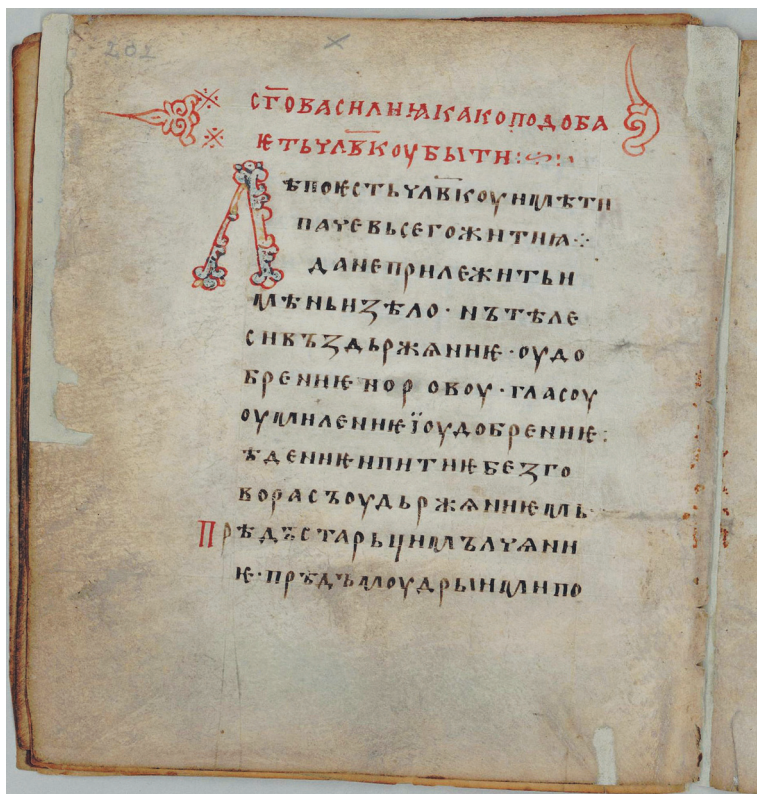 202
ст҃оваснлиꙗкакоподоба
ѥтьчл҃вкоубыти
Лѣпоѥстьчл҃вкоунмѣти
пачевьсегожитиꙗ
данеприлежитьи
мѣньиꙁѣло · нътѣле
сивъꙁдьржѧниѥ · оудо
брениѥноровоу · гласоу
оумилениѥꙇ̈оудобрениѥ:
ѣдениѥипитиѥбеꙁго
ворасъоудьржѧниѥмь
Прѣдъстарьцимълчѧни
ѥ · прѣдъмоудрыимипо